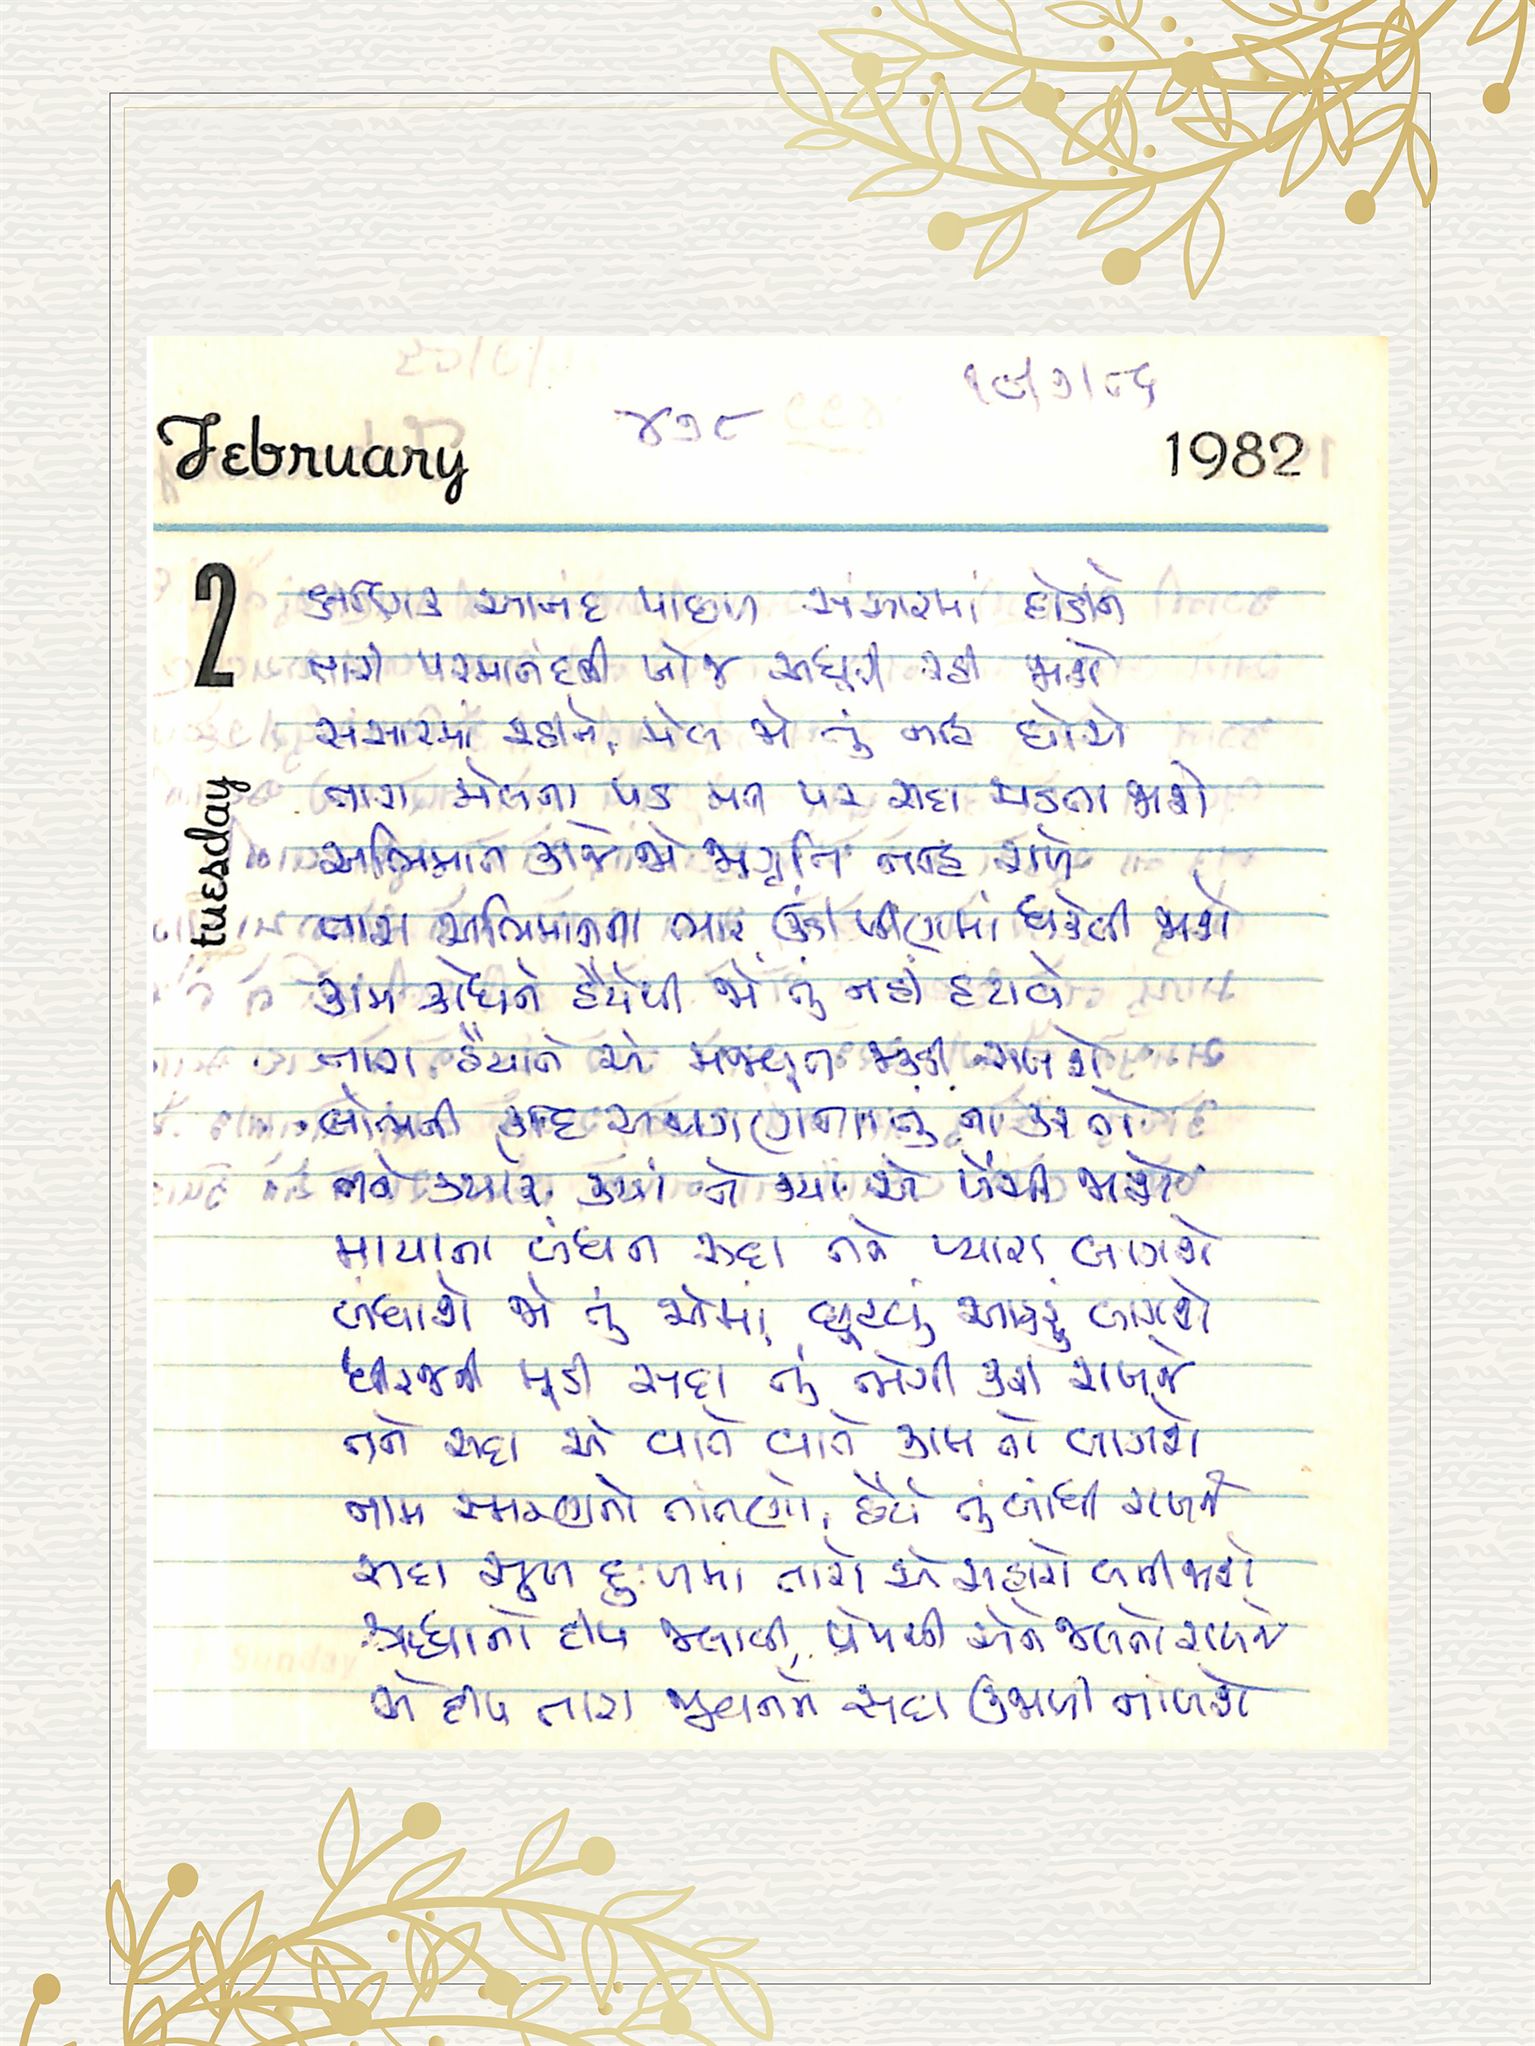 ૧૯/૭/૮૬
૪૭૮
February 1982
2
Tuesday
ક્ષણિક આનંદ પાછળ સંસારમાં દોડીને
તારી પરમાનંદની ખોજ અધૂરી રહી જાશે
સંસારમાં રહીને, મેલ જો તું નહિ ધોશે
તારા મેલના પડ મન પર સદા ચડતા જાશે
અભિમાન કાજે જો જાગૃતિ નહિ રાખે
તારા અભિમાનના ભાર ઊંડી ખીણમાં ધકેલી જાશે
કામ ક્રોધને હૈયેથી જો તું નહીં હટાવે
તારા હૈયાને એ મજબૂત જકડી રાખશે
લોભની કદિ અવગણના તું ના કરતો
તને ક્યારે ક્યાં ને ક્યાં એ ખેંચી જાશે
માયાના બંધન સદા તને પ્યારા લાગશે
બંધાશે જો તું એમાં, છૂટવું આકરું લાગશે
ધીરજની મૂડી સદા તું ભેગી કરી રાખજે
તને સદા એ વાતે વાતે કામ તો લાગશે
નામ સ્મરણનો તાંતણો, હૈયે તું બાંધી રાખજે
સદા સુખ દુઃખમાં તારો એ સહારો બની જાશે
શ્રદ્ધાનો દીપ જલાવી, પ્રેમથી એને જલતો રાખજે
એ દીપ તારા જીવનને સદા ઉજાળી નાખશે